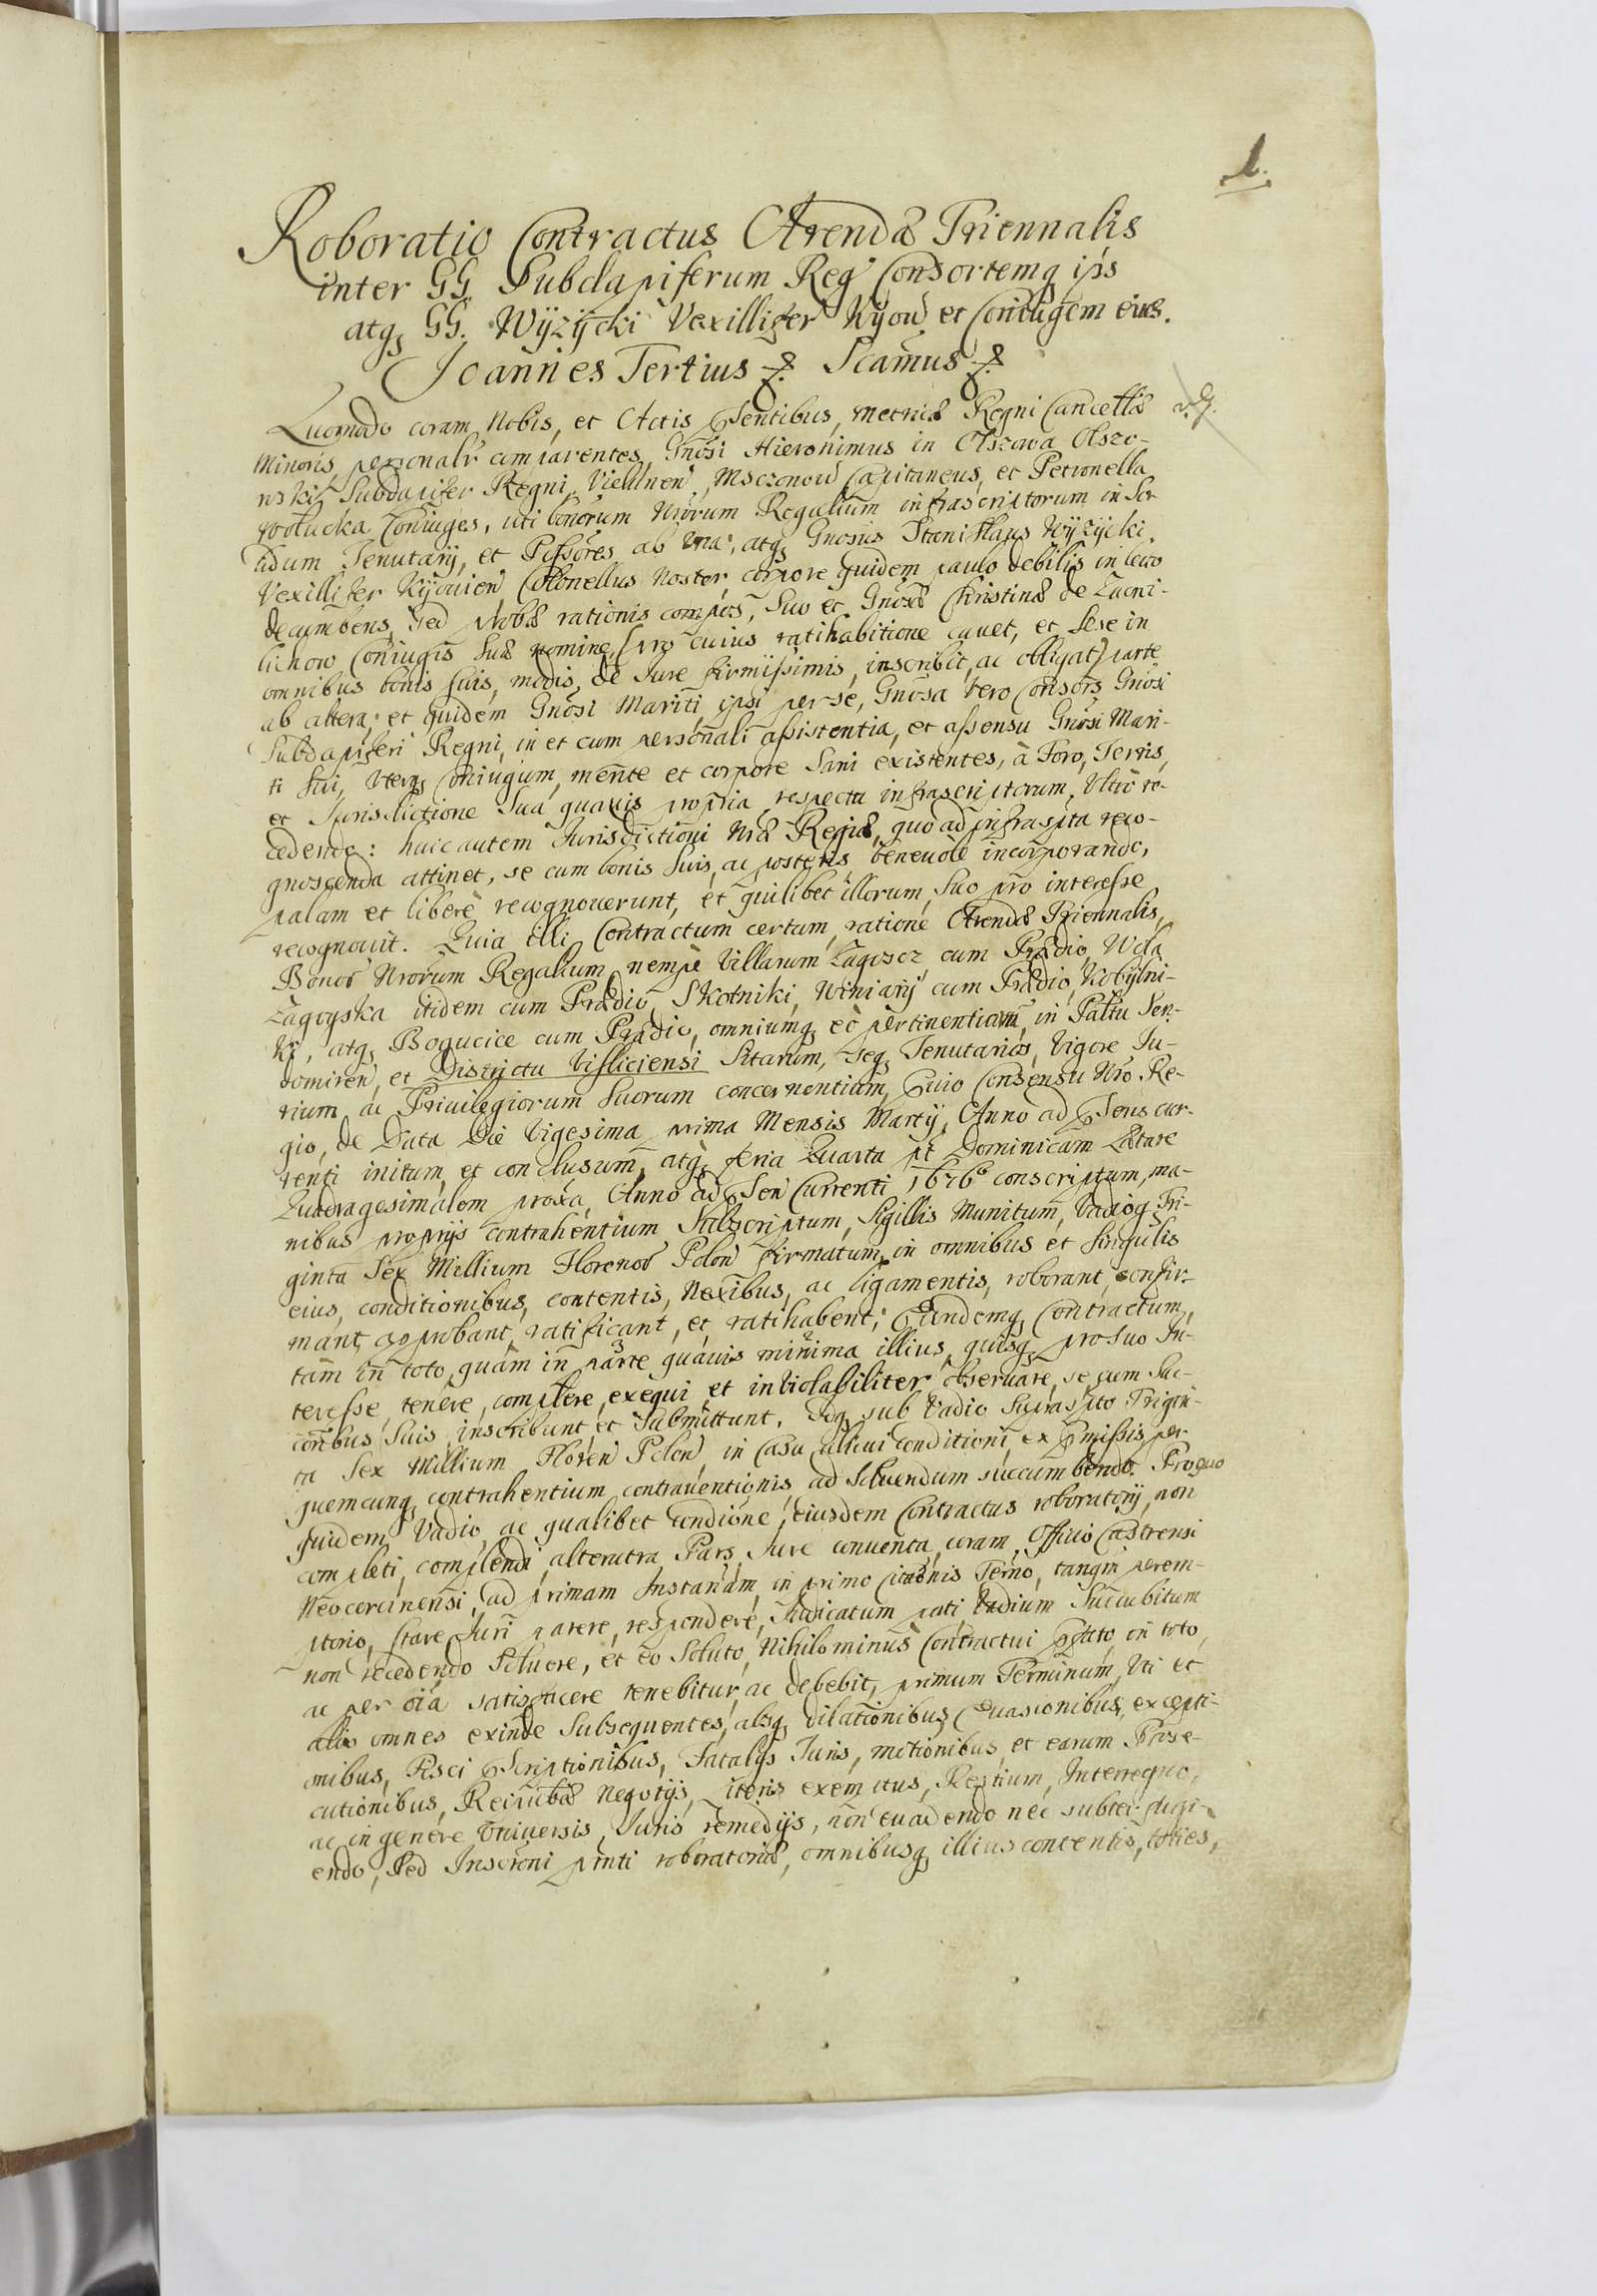 1.
Roboratio Contractus Arendæ Triennalis
inter GG Subdapiferum Reg Consortemq ips
atq GG. Wÿzÿcki Vexillifer Kÿoū et Coniugem eius.
Joannes Tertius &. Scamus &.
Quomodo coram Nobis, et Actis pñtibus, Metricæ Regni Cancellæ
Minoris, personalr comparentes, Gnosi Hieronimus in Olszowa Olszo-
wski Subdapifer Regni, Vielunen, Msczonow Capitaneus, et Petronella
Coniuges, uti bonorum Nrorum Regalium infrascriptorum in So-
lidum Tenutarÿ, et Possores ab una; atq Gnosus Stanislaus Wÿzÿcki
Vexillifer Kÿouien Colonellus Noster, corpore quidem paulo debilis in lecto
decumbens, sed probæ rationis compos, Suo et Gnosæ Christinæ de
Coniugis Suæ nomine, (pro cuius ratihabitione cauet, et sese in
omnibus bonis suis, modis, de Jure firmissimis, inscribit, ac obligat) parte
ab altera; et quidem Gnosi Mariti ipsi per se, Gnosa vero Consors Gnosi
Subdapiferi Regni, in et cum personali assistentia, et assensu Gnosi Mari-
ti sui, Coniugum, mente et corpore Sani existentes, à Foro, Terris,
et Jurisdictione Sua quauis propria respectu infrascriptorum, Ultro re-
cedendo: huic autem Jurisdictioni Nræ Regiæ, quo ad infraspta reco-
gnoscenda attinet, se cum bonis Suis, ac posteris beneuolè incorporando,
palam et liberè recognouerunt, et quilibet illorum, Suo pro interesse
recognouit. Quia illi Contractum certum, ratione Arendæ Triennalis,
Bonor Nrorum Regalium nempè Villarum Zagosc, cum Prædio, Wola
Zagoyska itidem cum Prædio, Skotniki, Winiarÿ cum Prædio, Kobÿlni-
ki, atq Bogucice cum Prædio, omniumq eò pertinentiarum, in Paltu Sen-
domiren, et Districtu Visliciensi Sitarum, Tenutarias, Vigore Ju-
rium ac Priuilegiorum Suorum concernentium, Consensu Nro Re-
gio, de Data Die Vigesima prima Mensis Martÿ, Anno ad pñs cur-
renti initum et conclusum, atq feria Quarta pt Dominicam Lætare
Quadragesimalem proxa, Anno ad pñsen Currenti 1676to conscriptum, ma-
nibus proprÿs contrahentium Subscriptum, Sigillis Munitum, Vadioq Tri-
ginta Sex Millium Florenor Polon firmatum, in omnibus et singulis
eius, conditionibus, contentis, Nexibus, ac ligamentis, roborant, confir-
mant, approbant, ratificant, et ratihabent; Eundemq Contractum,
tam in toto, quàm in parte quauis minima illius, quisq pro suo In-
teresse, tenere, complere, exequi et inviolabiliter obseruare, se cum Suc-
coribus Suis, inscribunt et Submittunt. Idq sub Vadio Suprascpto Trigin-
ta Sex Millium Floren Polon, in Casu alicui Conditioni, ex præmissis per
quemcunq contrahentium contrauentionis, ad Soluendum succumbendo. Pro quo
quidem Vadio, ac qualibet condione, eiusdem Contractus roboratorÿ, non
completi, complendi, alterutra Pars, Jure conuenta, coram Officio Castrensi
Neocorcinensi, ad primam Instanam, in primo citaonis Terno, tanqm perem-
ptorio, stare Juri parere, respondere, Judicatum pati, Vadium Succubitum
non recedendo Soluere, et eo Soluto, Nihilominùs Contractui in toto,
ac per oia satisfacere tenebitur, ac debebit, primum Terminum, Uti et
alios omnes exinde Subsequentes, absq dilationibus, Euasionibus, excepti-
onibus, Fisci pscriptionibus, Fatalÿs Juris, motionibus et earum Prose-
cutionibus, Reipublicæ Negotÿs, exemptus, Interregno,
ac in genere Uniuersis, Juris remedÿs, non euadendo nec subterfugi-
endo, Sed Inscroni pnti roboratoriæ, omnibusq illius contentis, toties,